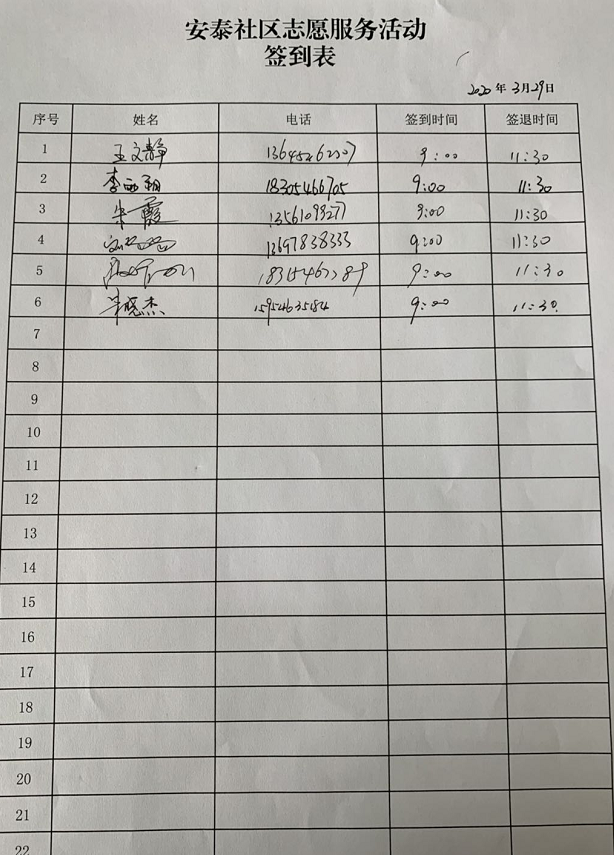 安泰社区志愿服务活动
签到表
2020年3月29日
序号 姓名 电话 签到时间 签退时间
1 王文静 9:00 11:30
2 18305466705 9:00 11:30
3 朱霞 13561093277 9:00 11:30
4 13697838333 9:00 11:30
5 9:00 11:30
6 晓杰 9:00 11:30
7
8
9
10
11
12
13
14
15
16
17
18
19
20
21
22